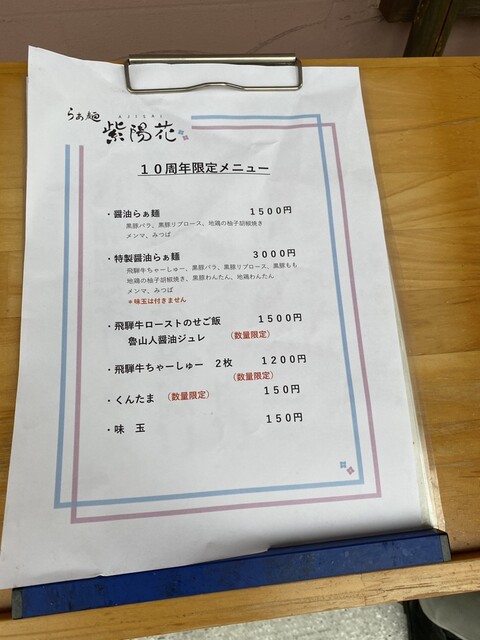 らぁ麺
AJISAI
紫陽花
10周年限定メニュー
・醤油らぁ麺 1500円
黒豚バラ、黒豚リブロース、地鶏の柚子胡椒焼き
メンマ、みつば
・特製醤油らぁ麺 3000円
飛騨牛ちゃーしゅー、黒豚バラ、黒豚リブロース、黒豚もも
地鶏の柚子胡椒焼き、黒豚わんたん、地鶏わんたん
メンマ、みつば
＊味玉は付きません
・飛騨牛ローストのせご飯 1500円
魯山人醤油ジュレ (数量限定)
・飛騨牛ちゃーしゅー 2枚 1200円
(数量限定)
・くんたま (数量限定) 150円
・味 玉 150円